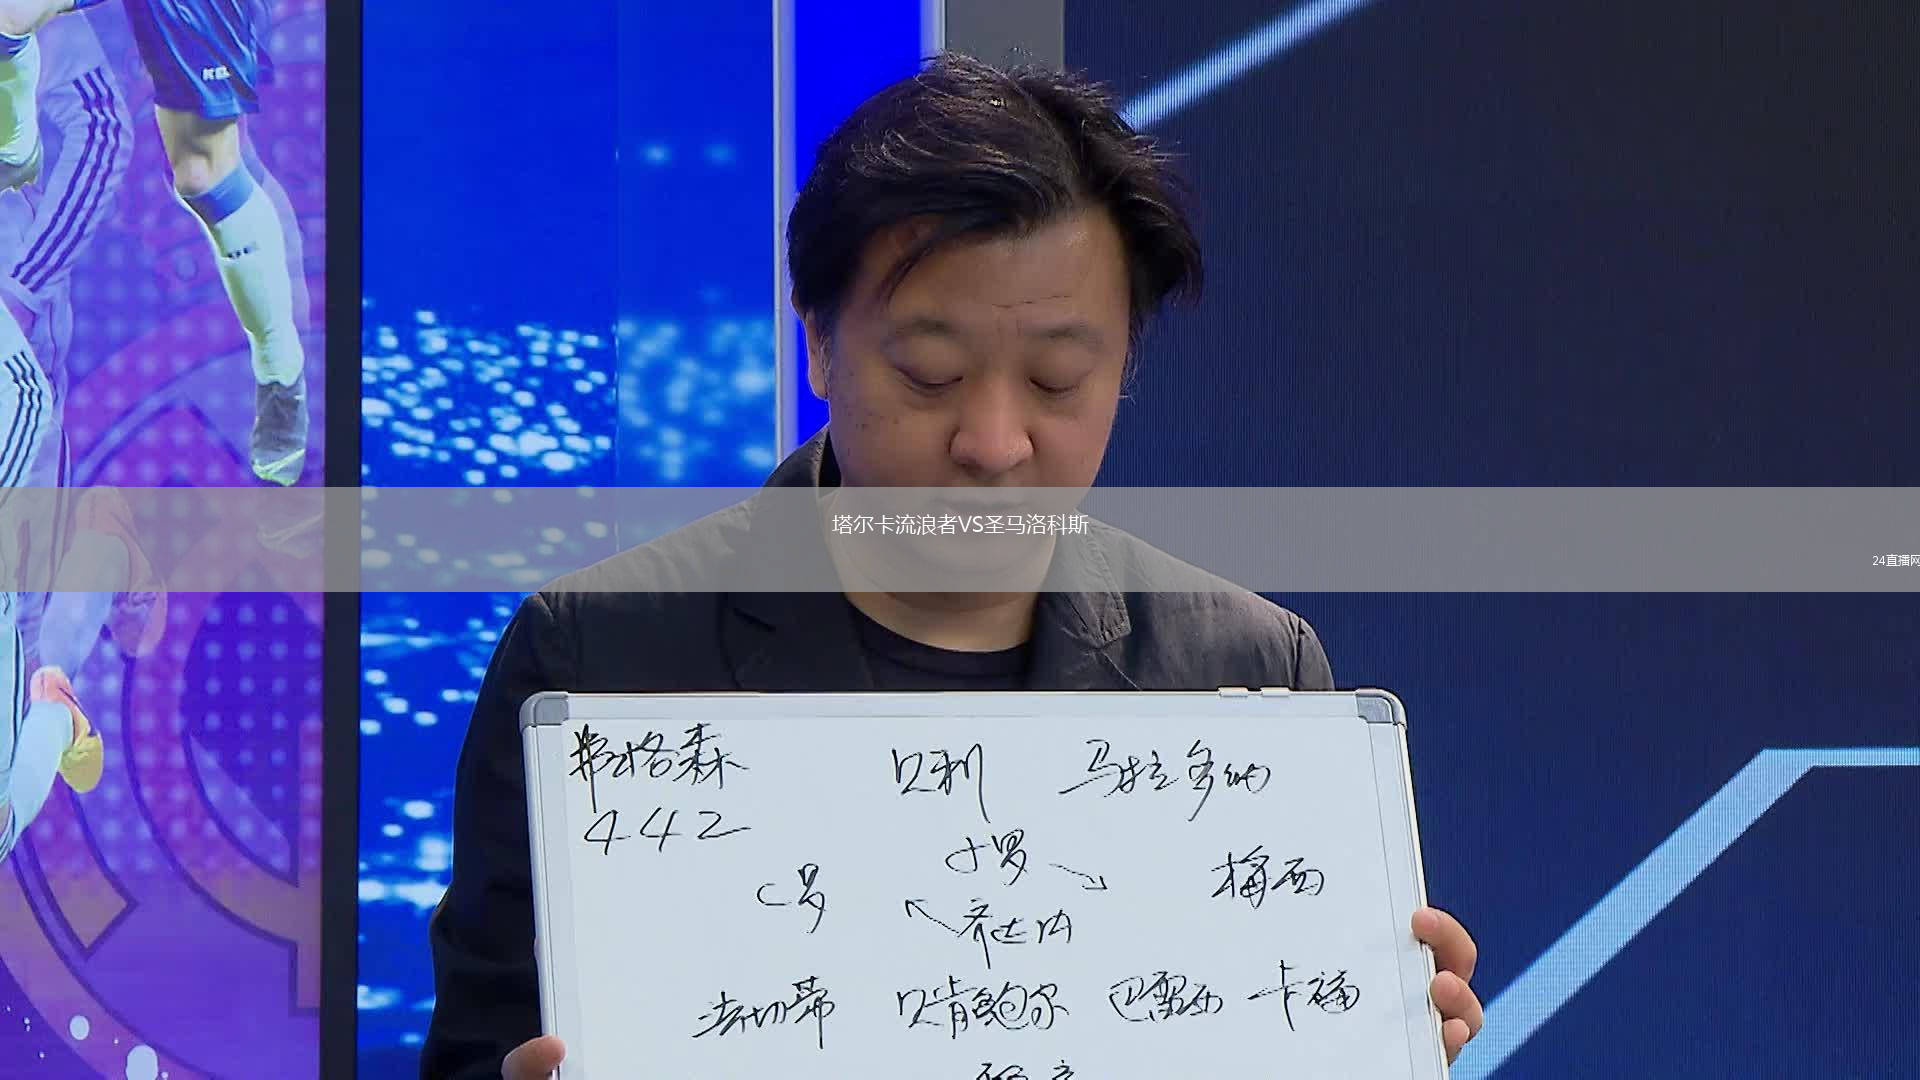 KELME
塔尔卡流浪者VS圣马洛科斯
24直播网
弗格森 贝利 马拉多纳
442
小罗
C罗 梅西
齐达内
法切蒂 贝肯鲍尔 巴雷西 卡福